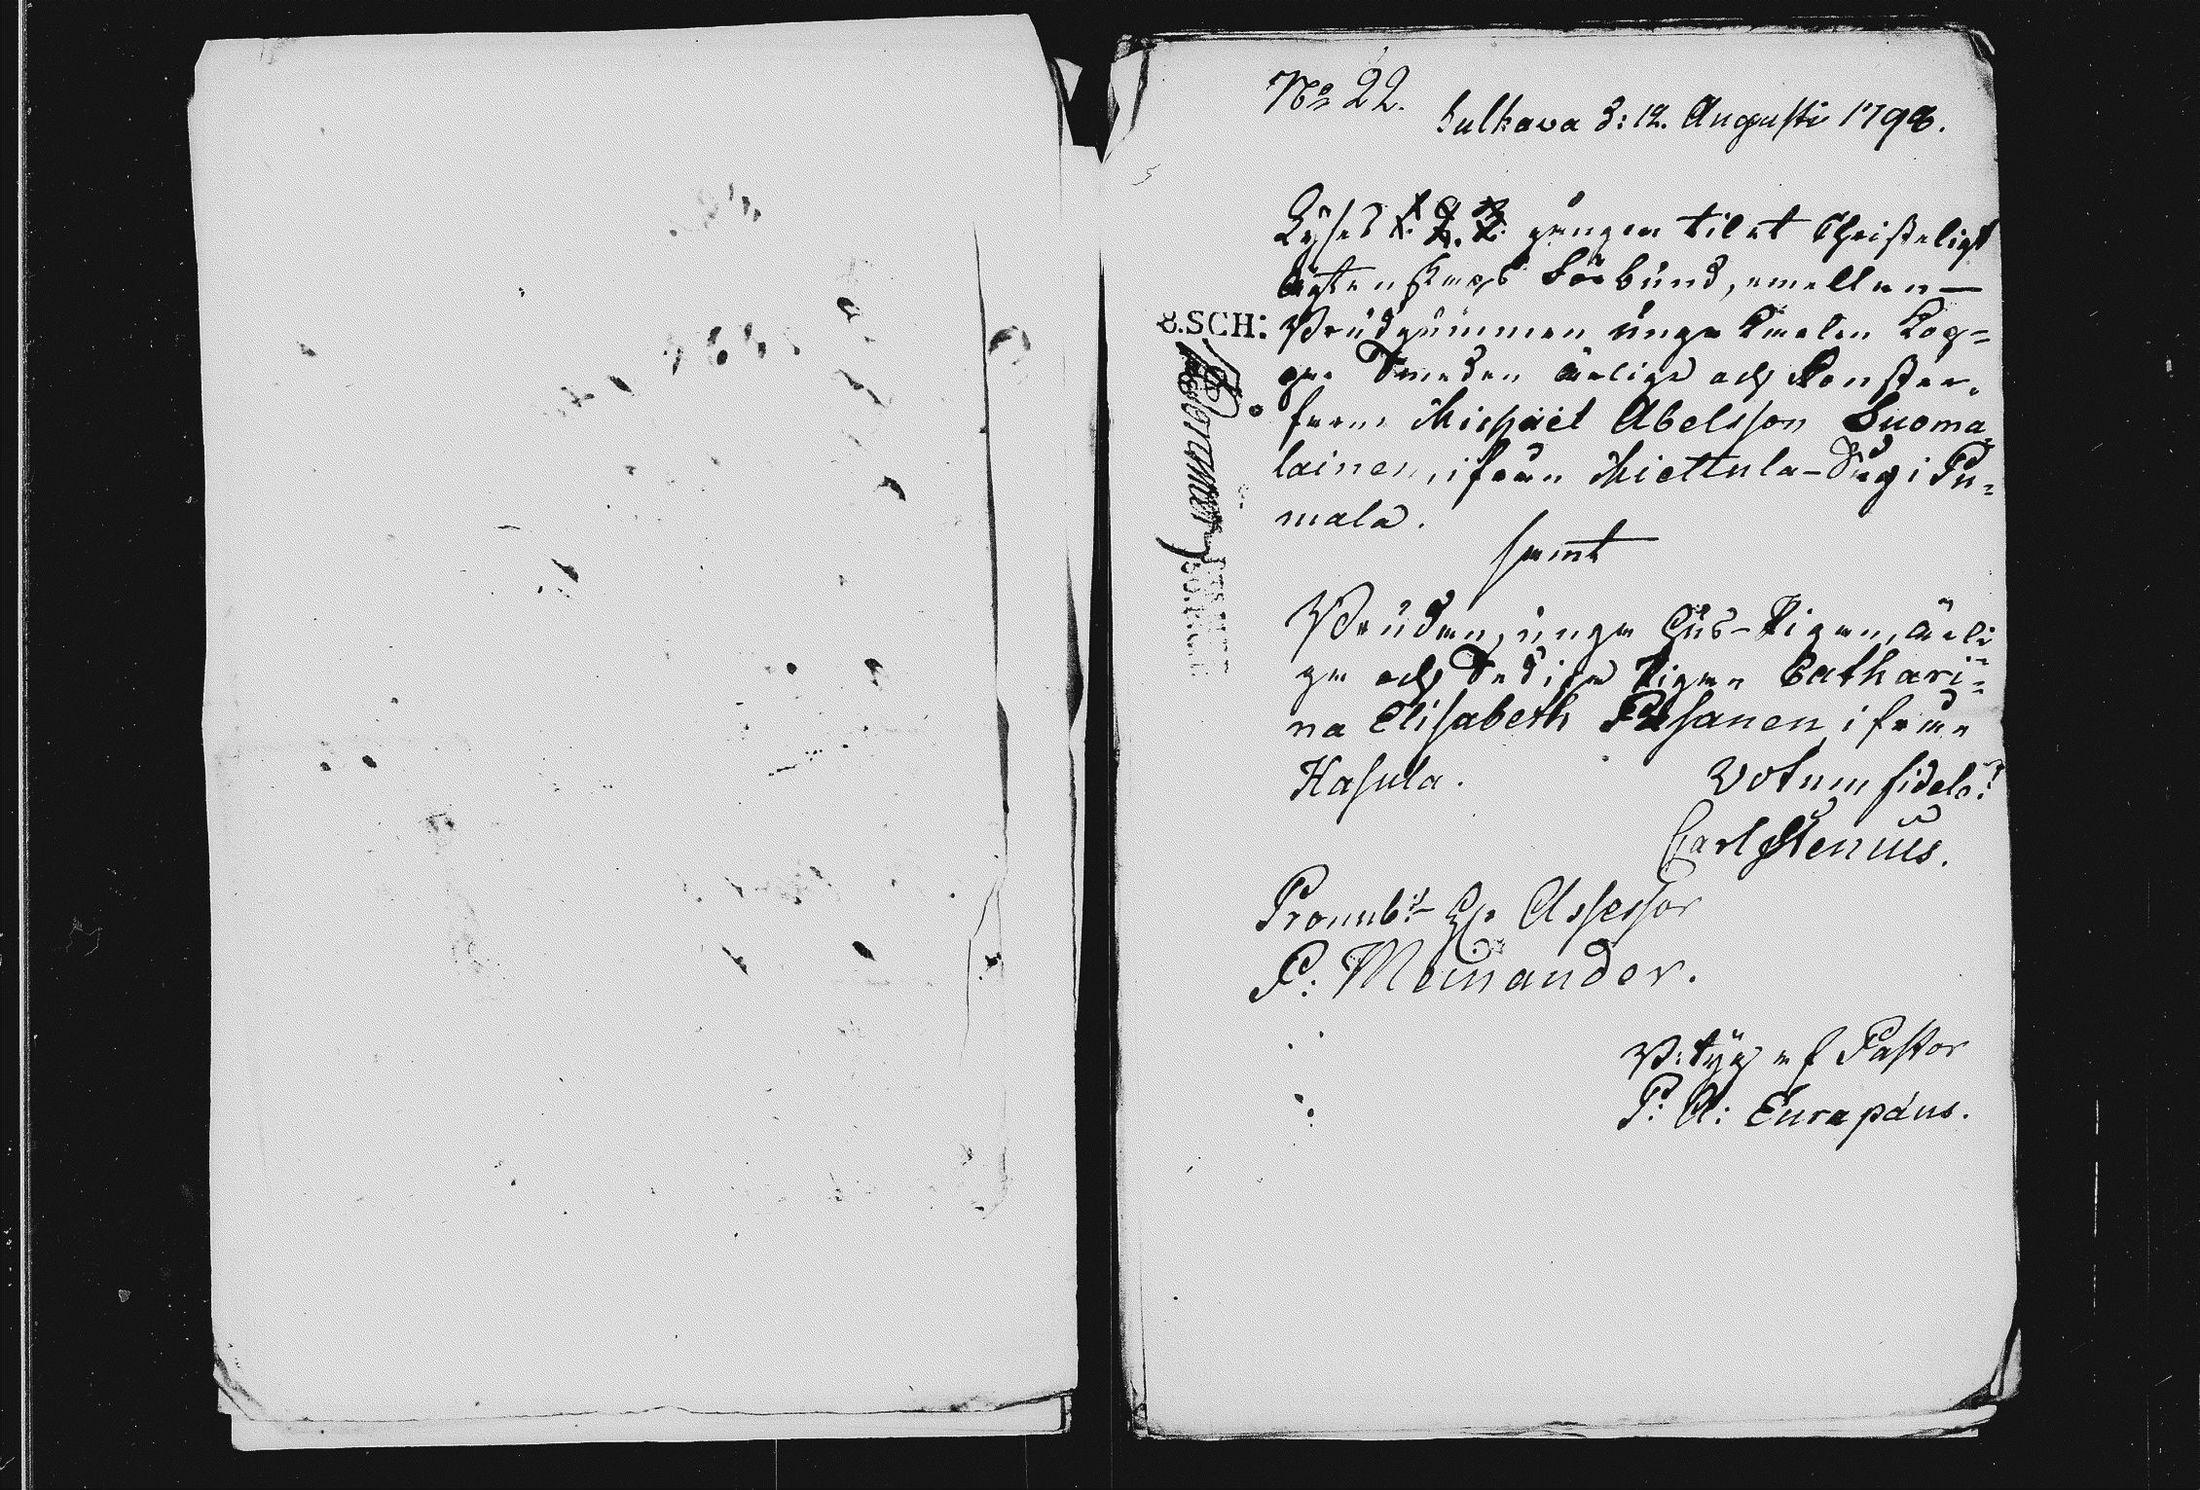 No 22.
Sulkava d: 12. Augusti 1798.
Lyses 1. 2. 3. gången til et Christeligt
ägtenskaps förbund, emellan
8.SCH: Brudgummen unge Karlen Kop=
par Smeden ärlige och Konster=
farne Michaël Abelsson Suoma=
lainen, ifrån Miettula-By i Pu=
mala.
samt
Bruden, unga Hus-Pigan, ärli=
ga och Sediga Pigan Cathari=
na Elisabeth Pesanen ifrån
Kasula.
Votum fidele!
Carl Stenius.
Pronub: Hr Assessor
P: Meinander.
Betyg af Pastor
P: A: Europæus.